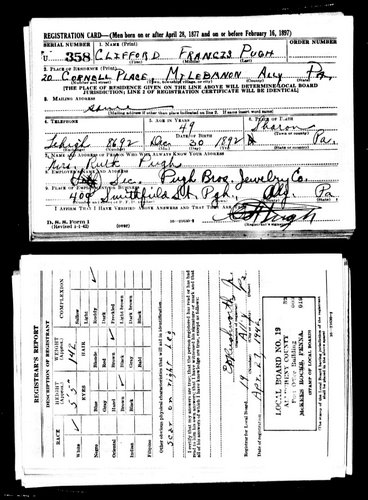 REGISTRATION CARD—(Men born on or after April 28, 1877 and on or before February 16, 1897)
SERIAL NUMBER 1. NAME (Print) ORDER NUMBER
U 358 CLIFFORD FRANCIS PUGH
(First) (Middle) (Last)
2. PLACE OF RESIDENCE (Print)
20 CORNELL PLACE, MT LEBANON ALLY PA.
[THE PLACE OF RESIDENCE GIVEN ON THE LINE ABOVE WILL DETERMINE LOCAL BOARD
JURISDICTION; LINE 2 OF REGISTRATION CERTIFICATE WILL BE IDENTICAL]
3. MAILING ADDRESS
same
[Mailing address if other than place indicated on line 2. If same insert word same]
4. TELEPHONE 5. AGE IN YEARS 6. PLACE OF BIRTH
49 Sharon
DATE OF BIRTH
Lehigh 8692 Dec 30 1892 Pa.
7. NAME AND ADDRESS OF PERSON WHO WILL ALWAYS KNOW YOUR ADDRESS
Mrs. Ruth Pugh
8. EMPLOYER'S NAME AND ADDRESS
Sec. Pugh Bros. Jewelry Co.
9. PLACE OF EMPLOYMENT OR BUSINESS
409 Smithfield St. Pgh. Alg. Pa
I AFFIRM THAT I HAVE VERIFIED ABOVE ANSWERS AND THAT THEY ARE TRUE.
D. S. S. Form 1
(Revised 4-1-42)
REGISTRAR'S REPORT
DESCRIPTION OF REGISTRANT
RACE HEIGHT (Approx.) WEIGHT (Approx.) COMPLEXION
5' 5" 142
EYES HAIR
White
Negro
Oriental
Indian
Filipino
Blue
Gray
Hazel
Brown
Black
Blonde
Red
Brown
Black
Gray
Bald
Sallow
Light
Ruddy
Dark
Freckled
Light brown
Dark brown
Black
Other obvious physical characteristics that will aid in identification
scar on right leg
Registrar for Local Board 19
Date of registration Apr. 27, 1942
LOCAL BOARD NO. 19
ALLEGHENY COUNTY
Post Office Building
McKEES ROCKS, PENNA.
(STAMP OF LOCAL BOARD)